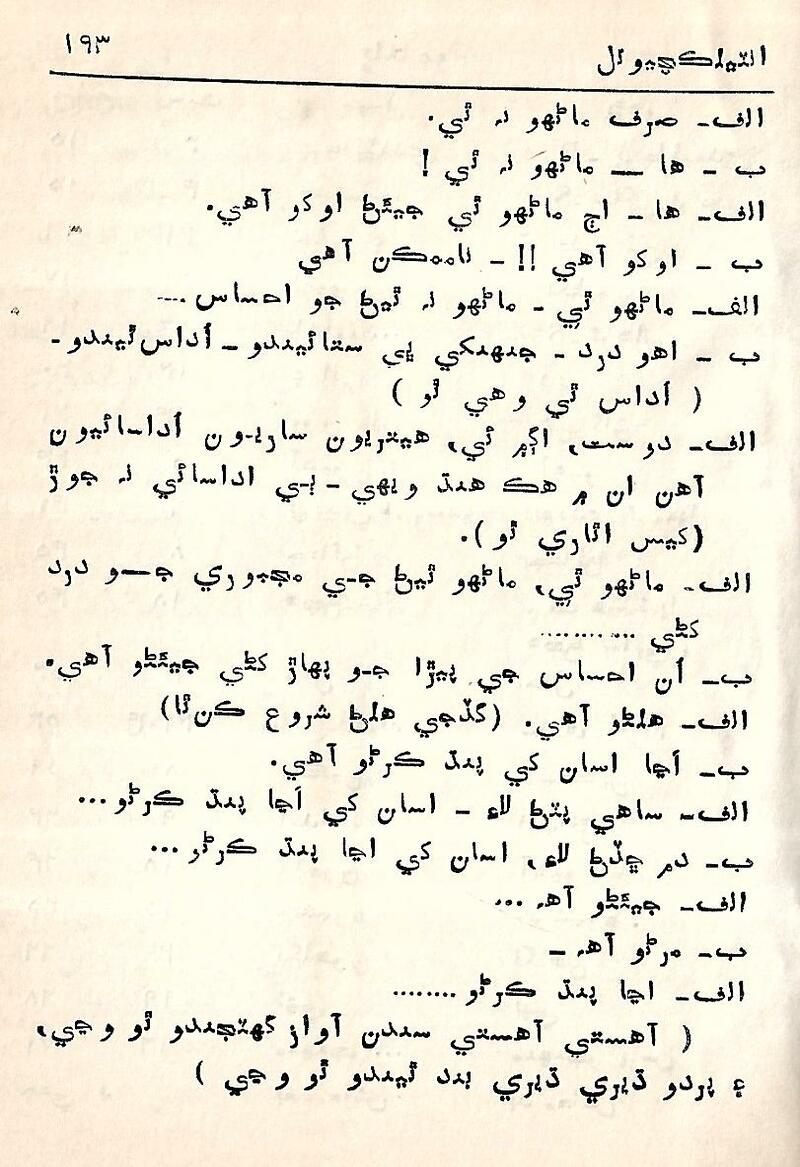 انٽيلڪچيوئل ١٩٣
الف- صرف ماڻهو نہ ٿي.
ب - ها — ماڻهو نہ ٿي !
الف- ها - اڄ ماڻهو ٿي جيئڻ اوکو آهي.
ب - اوکو آهي !! - ناممڪن آهي
الف- ماڻهو ٿي - ماڻهو نہ ٿيڻ جو احساس ....
ب - اهو درد - جنهنکي ڀي ستائيندو - اُداس ٿيندو -
( اُداس ٿي وهي ٿو )
الف- دوست، اڳ۾ ئي، هيتريون ساريون اُداسائيون
آهن ان ۾ هڪ هنڌ ويهي - ٻي اداسائي نہ جوڙ
(کيس اٿاري ٿو).
الف- ماڻهو ٿي، ماڻهو ٿيڻ جي مجبوري جو درد
کڻي ...........
ب- اُن احساس جي پيڙا جو پهاڙ کڻي جيئڻو آهي.
الف- هلڻو آهي. (گڏجي هلڻ شروع ڪن ٿا)
ب- اَڃا اسان کي پنڌ ڪرڻو آهي.
الف- ساهي پٽڻ لاءِ - اسان کي اَڃا پنڌ ڪرڻو...
ب- دم ڇڏڻ لاءِ، اسان کي اڃا پنڌ ڪرڻو ...
الف- جيئڻو آهہ ...
ب- مرڻو آهہ -
الف- اڃا پنڌ ڪرڻو ........
( آهستي آهستي سندن آواز گهٽجندو ٿو وڃي،
۽ پردو ڌيري ڌيري بند ٿيندو ٿو وڃي )